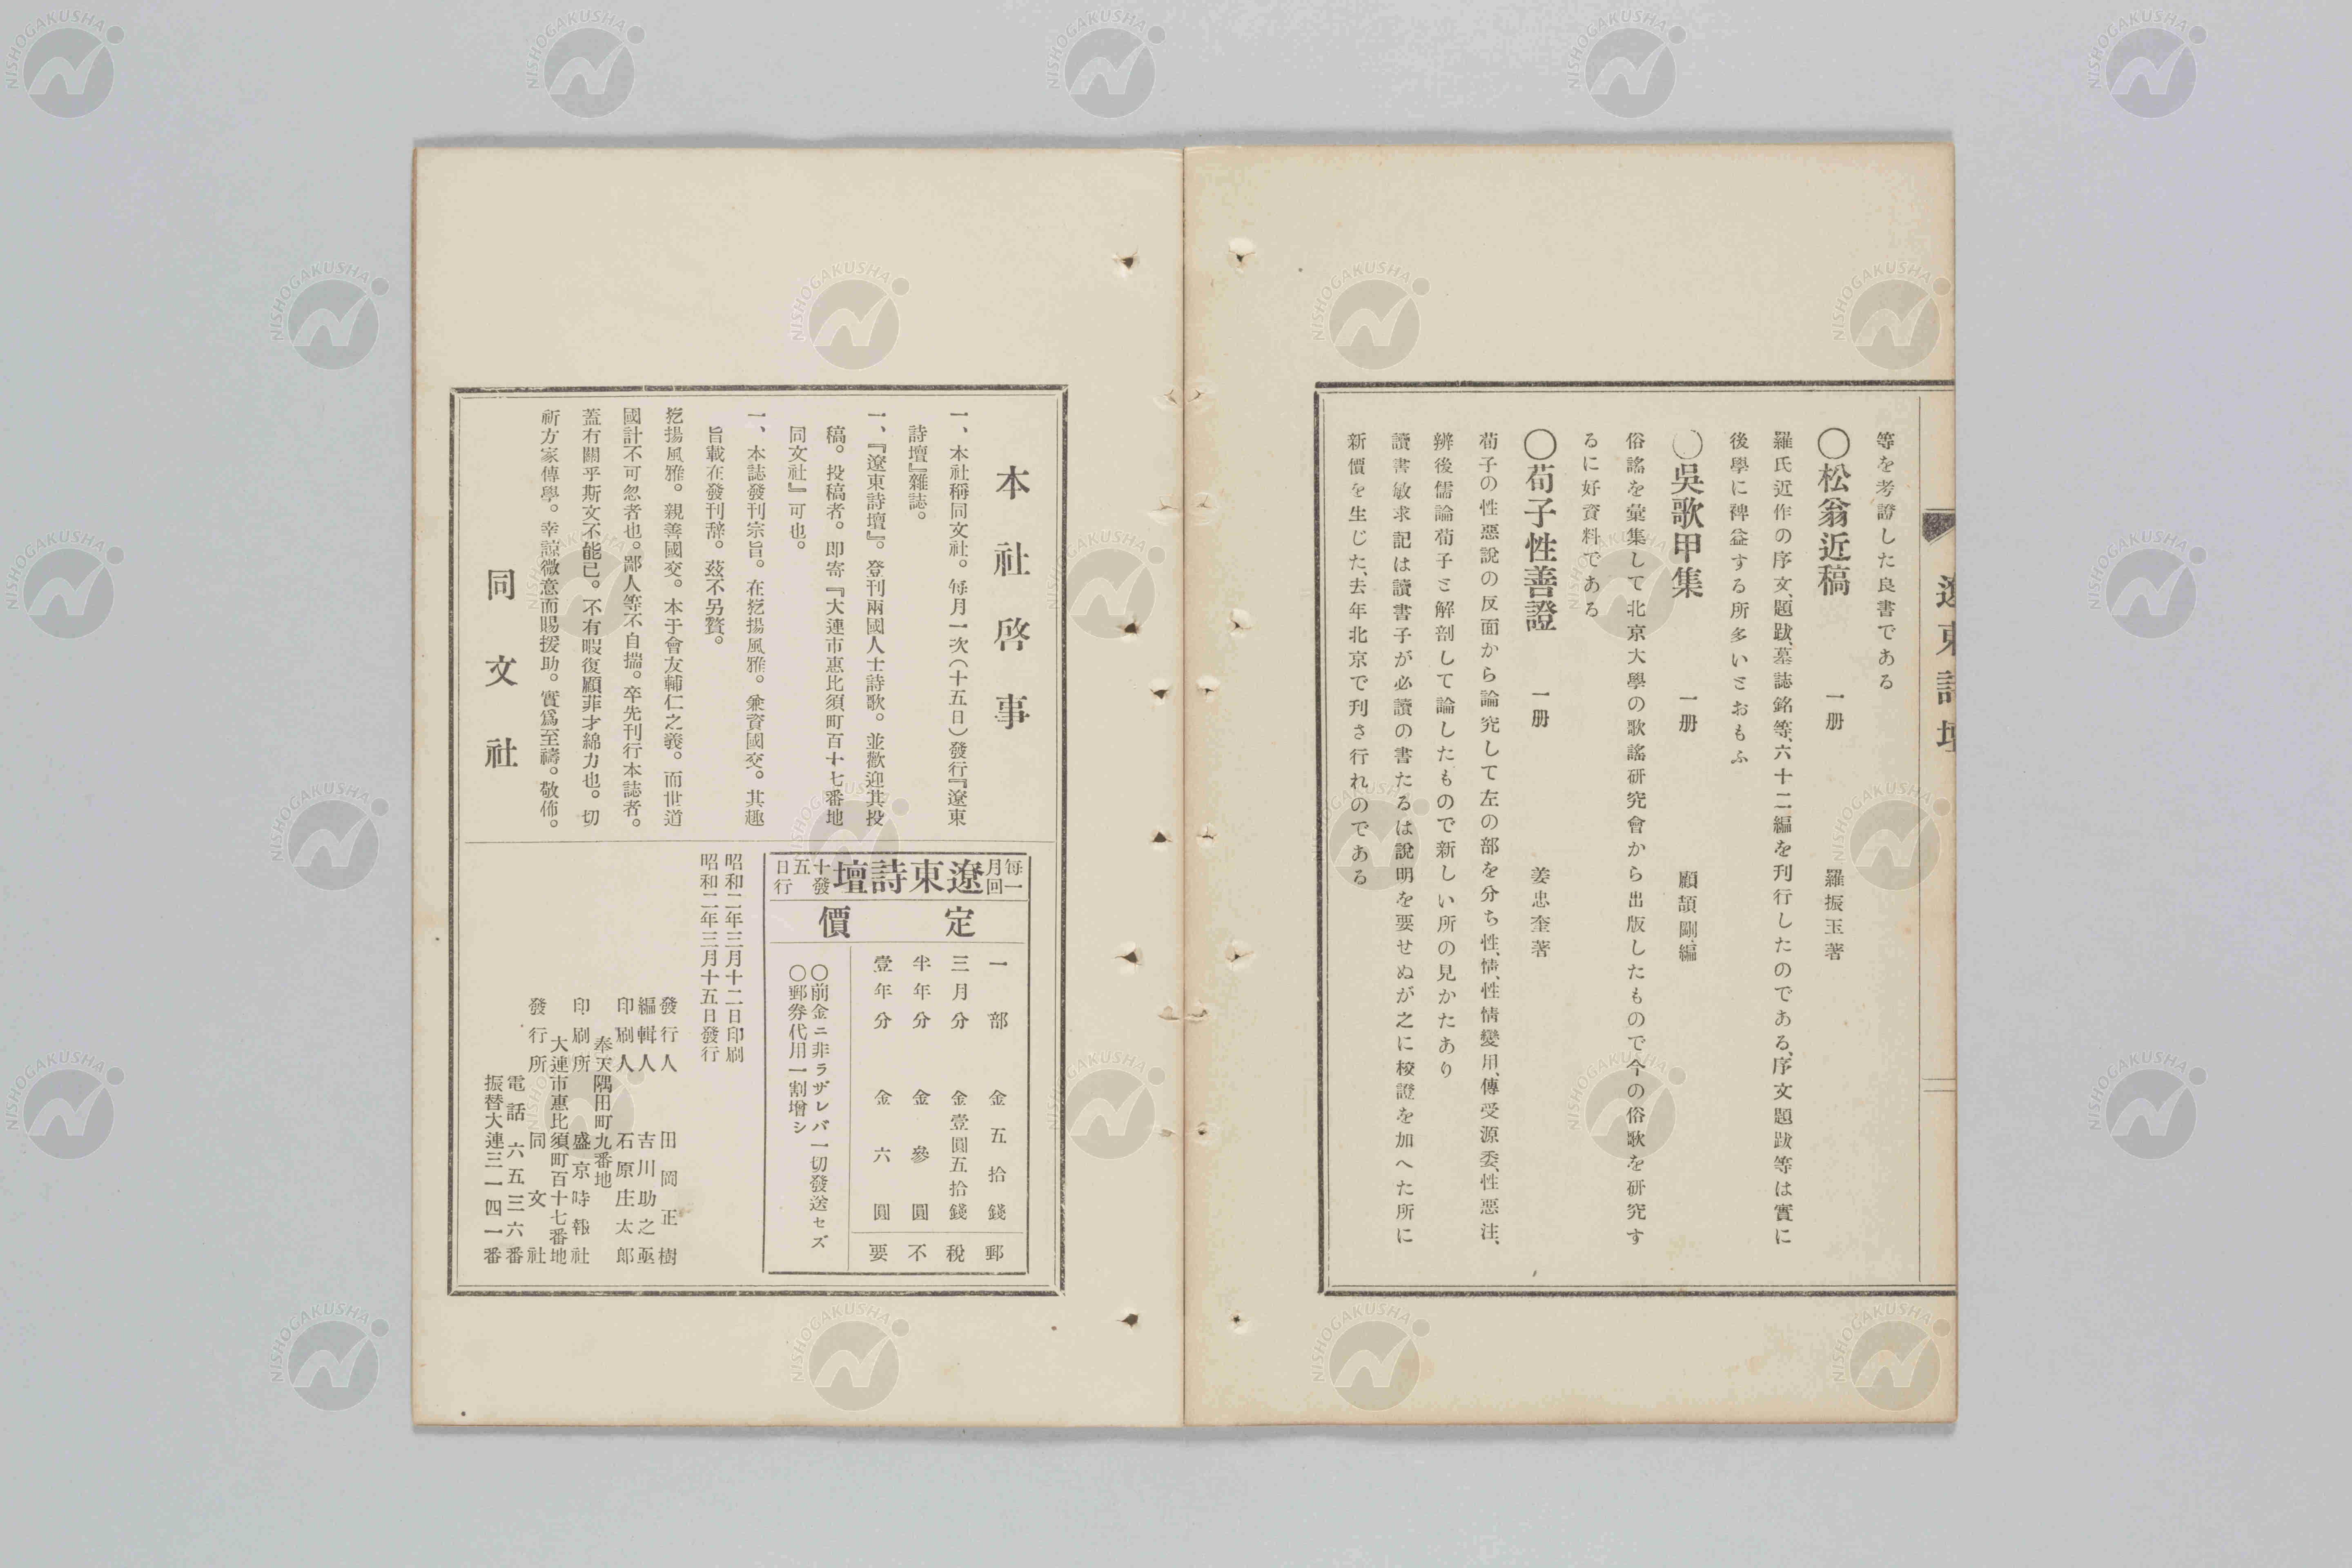 遼東詩壇
等を考證した良書である
〇松翁近稿 一册 羅振玉著
羅氏近作の序文、題跋、墓誌銘等、六十二編を刊行したのである、序文題跋等は實に
後學に裨益する所多いとおもふ
〇吳歌甲集 一册 顧頡剛編
俗謠を彙集して北京大學の歌謠研究會から出版したもので今の俗歌を研究す
るに好資料である
〇荀子性善證 一册 姜忠奎著
荀子の性惡說の反面から論究して左の部を分ち性、情、性情變用、傳受源委、性惡注、
辨後儒論荀子と解剖して論したもので新しい所の見かたあり
讀書敏求記は讀書子が必讀の書たるは說明を要せぬが之に校證を加へた所に
新價を生じた、去年北京で刊さ行れのである
本社啓事
一、本社稱同文社。每月一次（十五日）發行『遼東
詩壇』雜誌。
一、『遼東詩壇』。登刊兩國人士詩歌。並歡迎其投
稿。投稿者。即寄『大連市惠比須町百十七番地
同文社』可也。
一、本誌發刊宗旨。在扢揚風雅。兼資國交。其趣
旨載在發刊辞。茲不另贅。
扢揚風雅。親善國交。本于會友輔仁之義。而世道
國計不可忽者也。鄙人等不自揣。卒先刊行本誌者。
蓋有關乎斯文不能已。不有暇復顧菲才綿力也。切
祈方家傳學。幸諒微意而賜援助。實爲至禱。敬佈。
同文社
每月一回
遼東詩壇
十五日發行
定價
一部 金五拾錢
三月分 金壹圓五拾錢
半年分 金參圓
壹年分 金六圓
郵稅不要
〇前金ニ非ラザレバ一切發送セズ
〇郵券代用一割增シ
昭和二年三月十二日印刷
昭和二年三月十五日發行
發行人 田岡正樹
編輯人 吉川助之亟
印刷人 石原庄太郎
奉天隅田町九番地
印刷所 盛京時報社
大連市惠比須町百十七番地
發行所 同文社
電話六五三六番
振替大連三一四一番
NISHOGAKUSHA